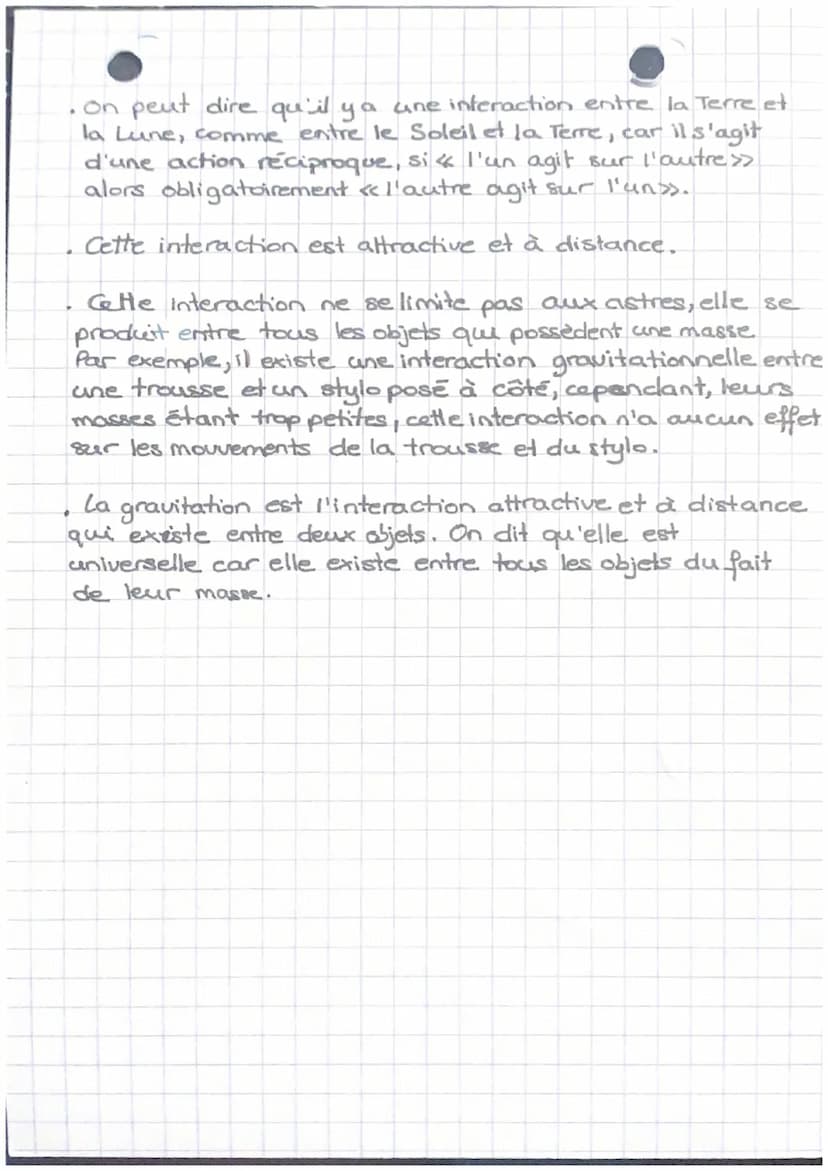 . On peut dire qu'il y a une interaction entre la Terre et
la Lune, comme entre le Soleil et la Terre, car il s'agit
d'une action réciproque, si « l'un agit sur l'autre »
alors obligatoirement « l'autre agit sur l'un ».
. Cette interaction est attractive et à distance.
. Cette interaction ne se limite pas aux astres, elle se
produit entre tous les objets qui possèdent une masse
Par exemple, il existe une interaction gravitationnelle entre
une trousse et un stylo posé à côté, cependant, leurs
masses étant trop petites, cette interaction n'a aucun effet
sur les mouvements de la trousse et du stylo.
. La gravitation est l'interaction attractive et à distance
qui existe entre deux objets. On dit qu'elle est
universelle car elle existe entre tous les objets du fait
de leur masse.